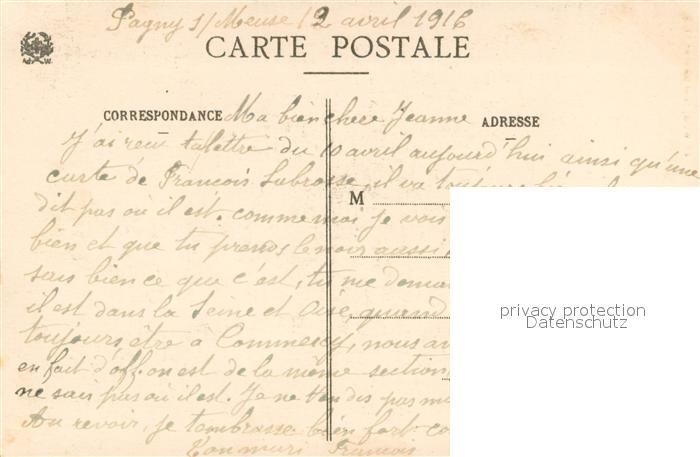 Pagny s/Meuse 12 avril 1916
CARTE POSTALE
CORRESPONDANCE Ma bien chère Jeanne ADRESSE
J'ai reçu ta lettre du 10 avril aujourd'hui ainsi qu'une
carte de François Labrosse, il va toujours
dit pas où il est. comme moi je vois
M
bien et que tu prends le noir aussi
sais bien ce que c'est, tu me deman
il est dans la Seine et Oise, quand
toujours être à Commercy, nous av
en fait d'off. on est de la même section
ne sais pas où il est. Je ne t'en dis pas
Au revoir, je t'embrasse bien fort co
Ton mari François
privacy protection
Datenschutz